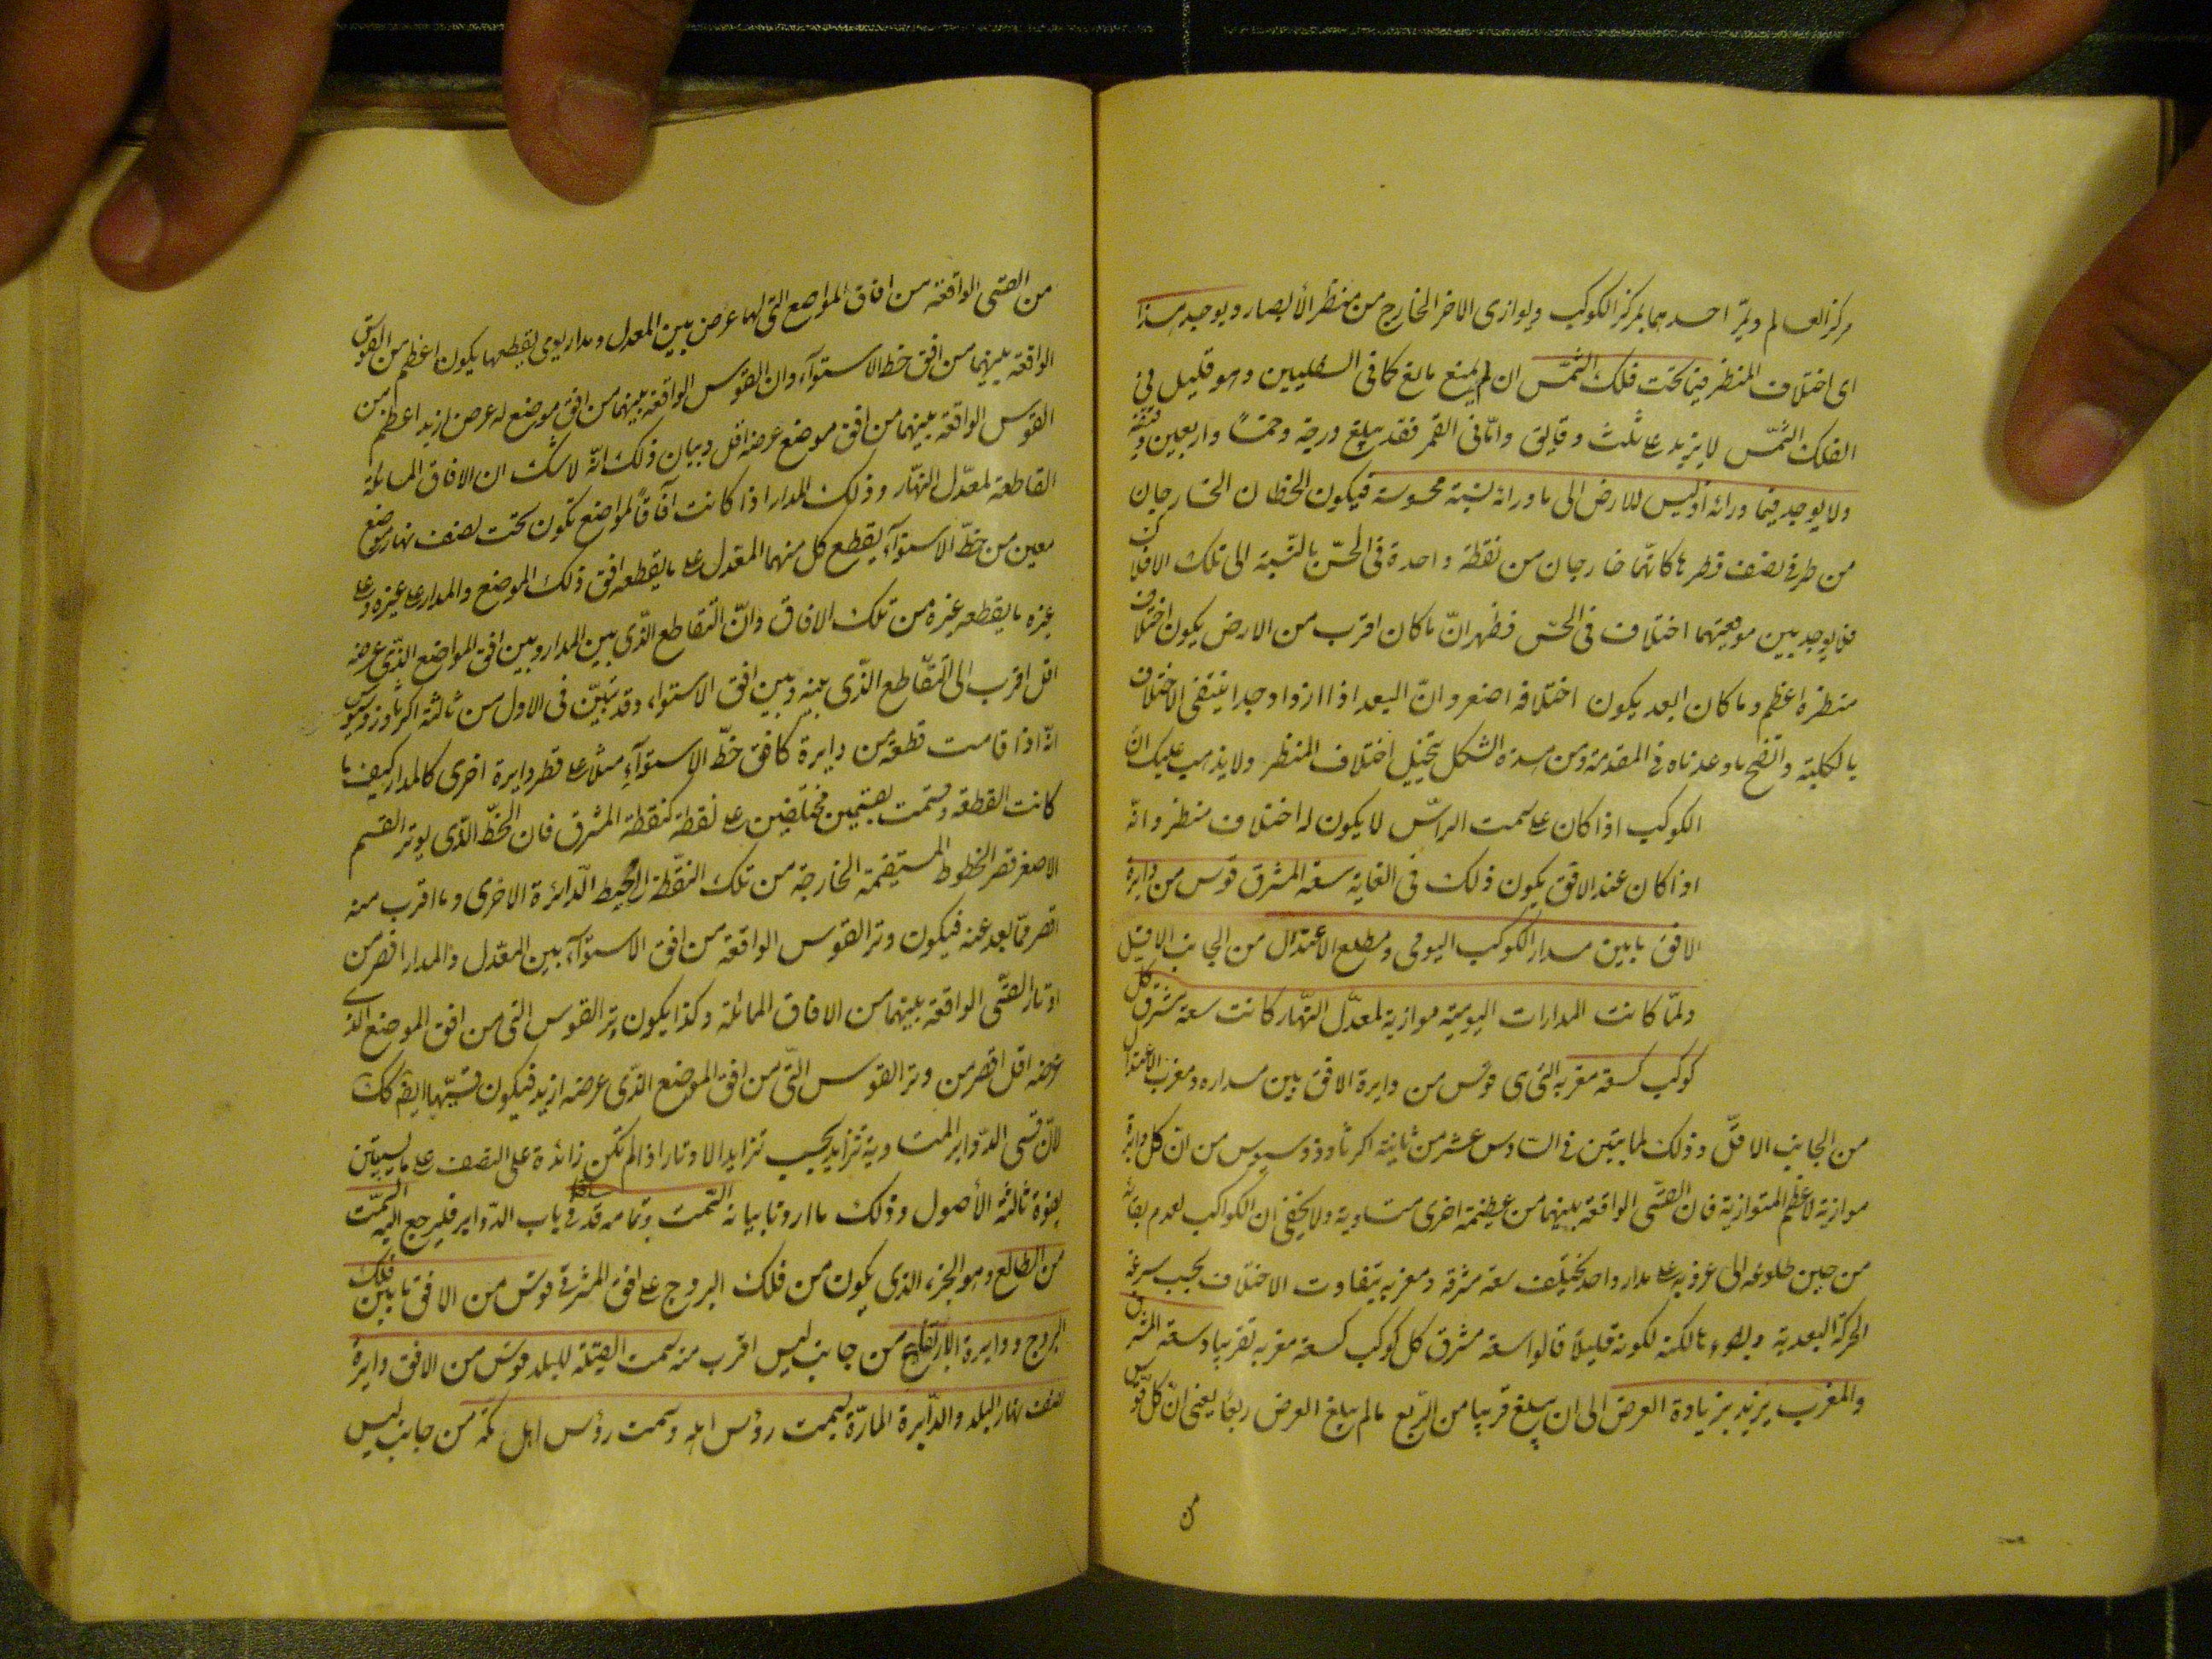 مركز العالم ويمر احدهما بمركز الكوكب ويوازى الاخر الخارج من منظر الأبصار ويوجد هذا
اى اختلاف المنظر فيما تحت فلك الشمس ان لم يمنع مانع كما فى السفليين وهو قليل فى
الفلك الشمس لا يزيد على ثلث دقايق وامّا فى القمر فقد يبلغ درجة وخمسًا واربعين دقيقة
ولا يوجد فيما ورائه اذ ليس للارض الى ما ورائه نسبة محسوسة فيكون الخطان الخارجان
من طرفى نصف قطرها كانهما خارجان من نقطة واحدة فى الحسّ بالنسبة الى تلك الافلاك
فلا يوجد بين موقعيهما اختلاف فى الحسّ فظهر انّ ما كان اقرب من الارض يكون اختلاف
منظره اعظم وما كان ابعد يكون اختلافه اصغر وانّ البعد اذا ازداد جدا ينتفى الاختلاف
بالكلية واتضح ما وعدناه فى المقدمة ومن هذه الشكل يتخيل اختلاف المنظر ولا يذهب عليك انّ
الكوكب اذا كان على سمت الراس لا يكون له اختلاف منظر وانّه
اذا كان عند الافق يكون ذلك فى الغاية سعة المشرق قوس من دايرة
الافق ما بين مدار الكوكب اليومى ومطلع الاعتدال من الجانب الاقل
ولمّا كانت المدارات اليومية موازية لمعدّل النهار كانت سعة مشرق كل
كوكب كسعة مغربه التى هى قوس من دايرة الافق بين مداره ومغرب الاعتدال
من الجانب الاقلّ وذلك لما تبين فى السادس عشر من ثانية اكر ثاوذوسيوس من ان كل دايرة
موازية لاعظم المتوازية فان القسّى الواقعة بينهما من عظيمة اخرى متساوية ولا يخفى ان الكواكب لعدم بقائه
من حين طلوعه الى غروبه على مدار واحد يختلف سعة مشرقه ومغربه بتفاوت الاختلاف بحسب سرعة
الحركة البعدية وبطوء لكنه لكونه قليلاً قالوا سعة مشرق كل كوكب كسعة مغربه تقريبا وسعة المشرق
والمغرب يزيد بزيادة العرض الى ان يبلغ قريبا من الربع ما لم يبلغ العرض ربعًا يعنى انّ كلّ قوس
من
من القسى الواقعة من افاق المواضع التى لها عرض بين المعدل ومدار يومى يقطعها يكون اعظم من القوس
الواقعة بينهما من افق خط الاستوآء وان القوس الواقعة بينهما من افق موضع له عرض ازيد اعظم من
القوس الواقعة بينهما من افق موضع عرضه اقل وبيان ذلك انّه لا شك ان الافاق المائلة
القاطعة لمعدّل النهار وذلك المدار اذا كانت آفاقًا لمواضع تكون تحت نصف نهار موضع
معين من خطّ الاستوآء يقطع كل منهما المعدل على ما يقطعه افق ذلك الموضع والمدار على غيره وعلى
غيره ما يقطعه غيره من تلك الافاق وانّ التقاطع الذى بين المدار وبين افق المواضع الذى عرضه
اقل اقرب الى التقاطع الذى بينه وبين افق الاستواء وقد تبيّن فى الاول من ثالثة اكر ثاوذوسيوس
انّه اذا قامت قطعة من دايرة كافق خطّ الاستوآء مثلاً على قطر دايرة اخرى كالمدار كيف ما
كانت القطعة وقسمت بقسمين مختلفين على نقطة كنقطة المشرق فان الخطّ الذى يوتر القسم
الاصغر اقصر الخطوط المستقيمة الخارجة من تلك النقطة الى محيط الدائرة الاخرى وما اقرب منه
اقصر مما بعد عنه فيكون وتر القوس الواقعة من افق الاستوآء بين المعدّل والمدار اقصر من
اوتار القسّى الواقعة بينهما من الافاق المائلة وكذا يكون وتر القوس التى من افق الموضع الذى
عرضه اقل اقصر من وتر القوس التّى من افق الموضع الذّى عرضه ازيد فيكون قسيّها ايضا كك
لانّ قسى الدّواير المتساوية تتزايد بحسب تزايد الاوتار اذا لم تكن زائدة على النصف على ما يستبين
بقوة ثالثة الأصول وذلك ما اردنا بيانه السّمت وتمامه قد سلفا فى باب الدّواير فليرجع اليه السّمت
من الطالع وهو الجزء الذى يكون من فلك البروج على افق المشرق قوس من الافق ما بين فلك
البروج ودايرة الارتفاع من جانب ليس اقرب منه سمت القبلة للبلد قوس من الافق دايرة
نصف نهار البلد والدّايرة المارّة بسمت رؤس اهله وسمت رؤس اهل مكّة من جانب ليس